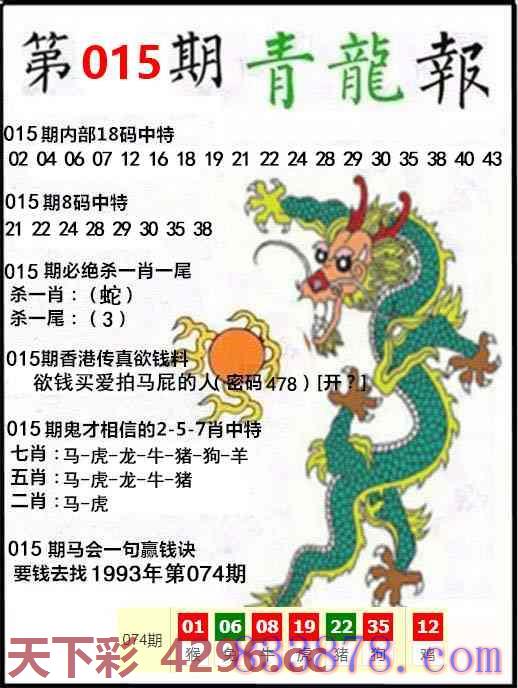 第015期青龍報
015期内部18码中特
02 04 06 07 12 16 18 19 21 22 24 28 29 30 35 38 40 43
015期8码中特
21 22 24 28 29 30 35 38
015 期必绝杀一肖一尾
杀一肖：（蛇）
杀一尾：（3）
015期香港传真欲钱料
欲钱买爱拍马屁的人（密码478）[开？]
015期鬼才相信的2-5-7肖中特
七肖：马-虎-龙-牛-猪-狗-羊
五肖：马-虎-龙-牛-猪
二肖：马-虎
015 期马会一句赢钱诀
要钱去找1993年第074期
074期 01 06 08 19 22 35 12
猴 兔 牛 虎 猪 狗 鸡
天下彩 4296.cc